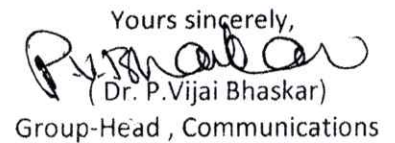 Yours sincerely,
P.V.Bhaskar
( Dr. P.Vijai Bhaskar)
Group-Head , Communications